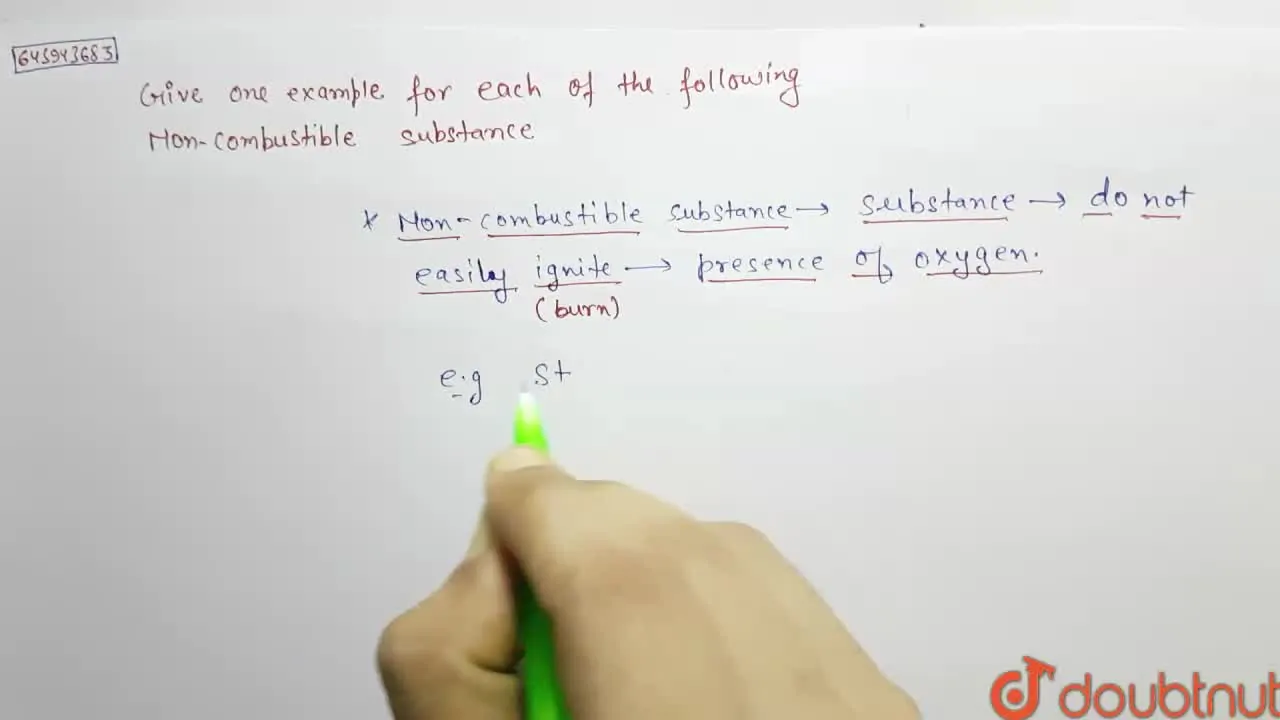 645943683
Give one example for each of the following
Non-combustible substance
* Non-combustible substance → substance → do not
easily ignite → presence of oxygen.
(burn)
e.g St
doubtnut